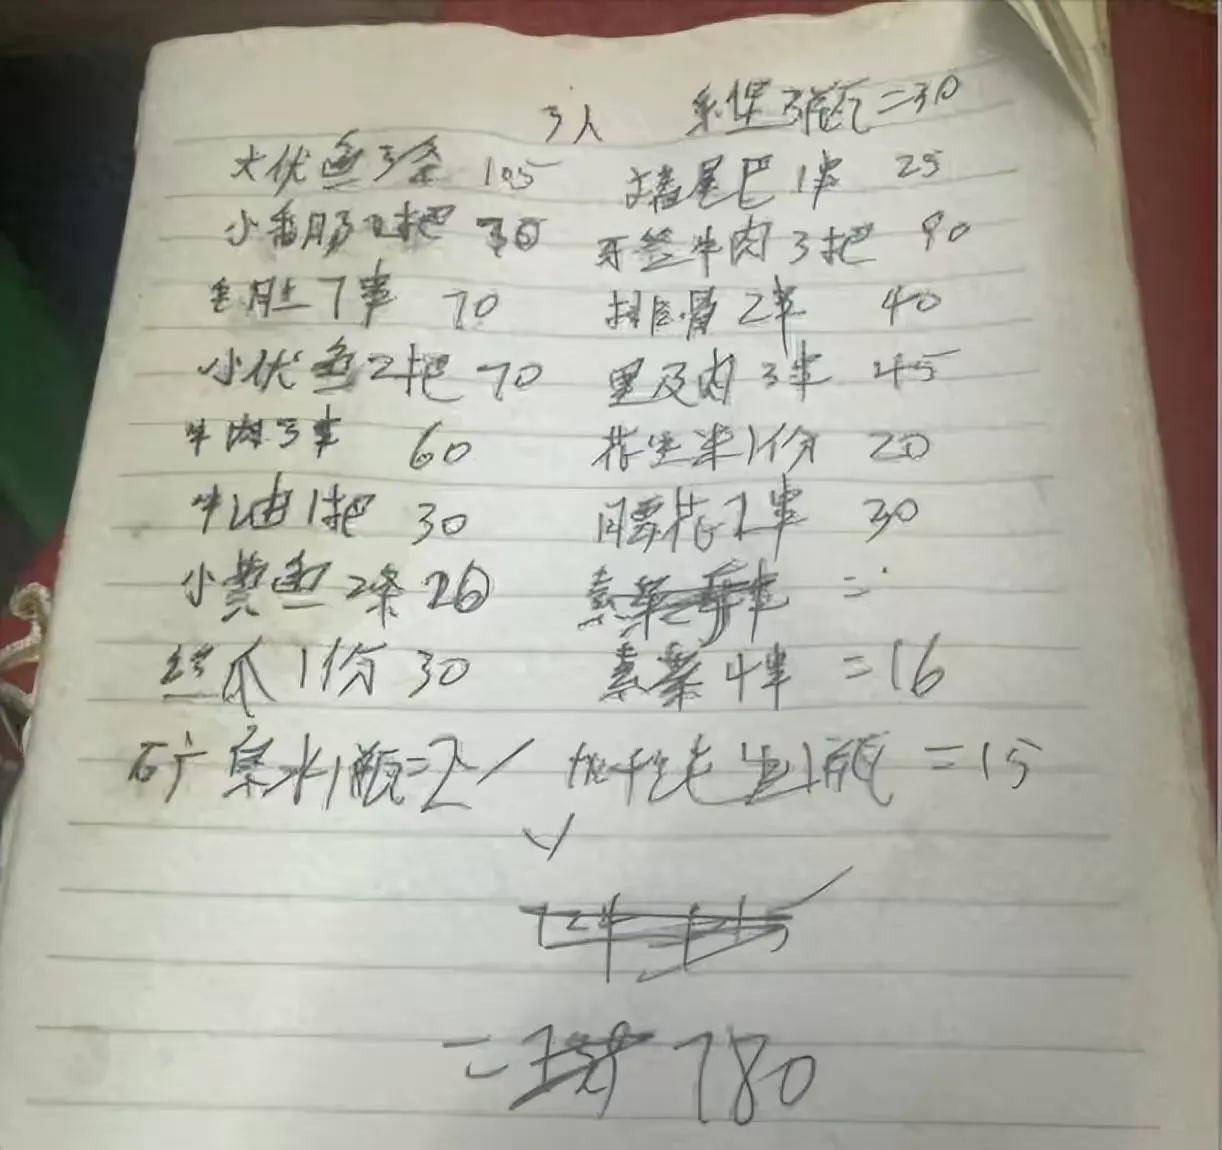 3人 3瓶=30
大伏鱼3条 105 猪尾巴1串 25
小香肠2把 70 牙签牛肉3把 90
毛肚7串 70 排骨2串 40
小伏鱼2把 70 里及肉3串 45
牛肉3串 60 花生米1份 20
牛油1把 30 腰花2串 30
小黄鱼2条 20 素菜 =
丝瓜1份 30 素菜4串 =16
矿泉水1瓶=2 生1瓶 =15
= 780